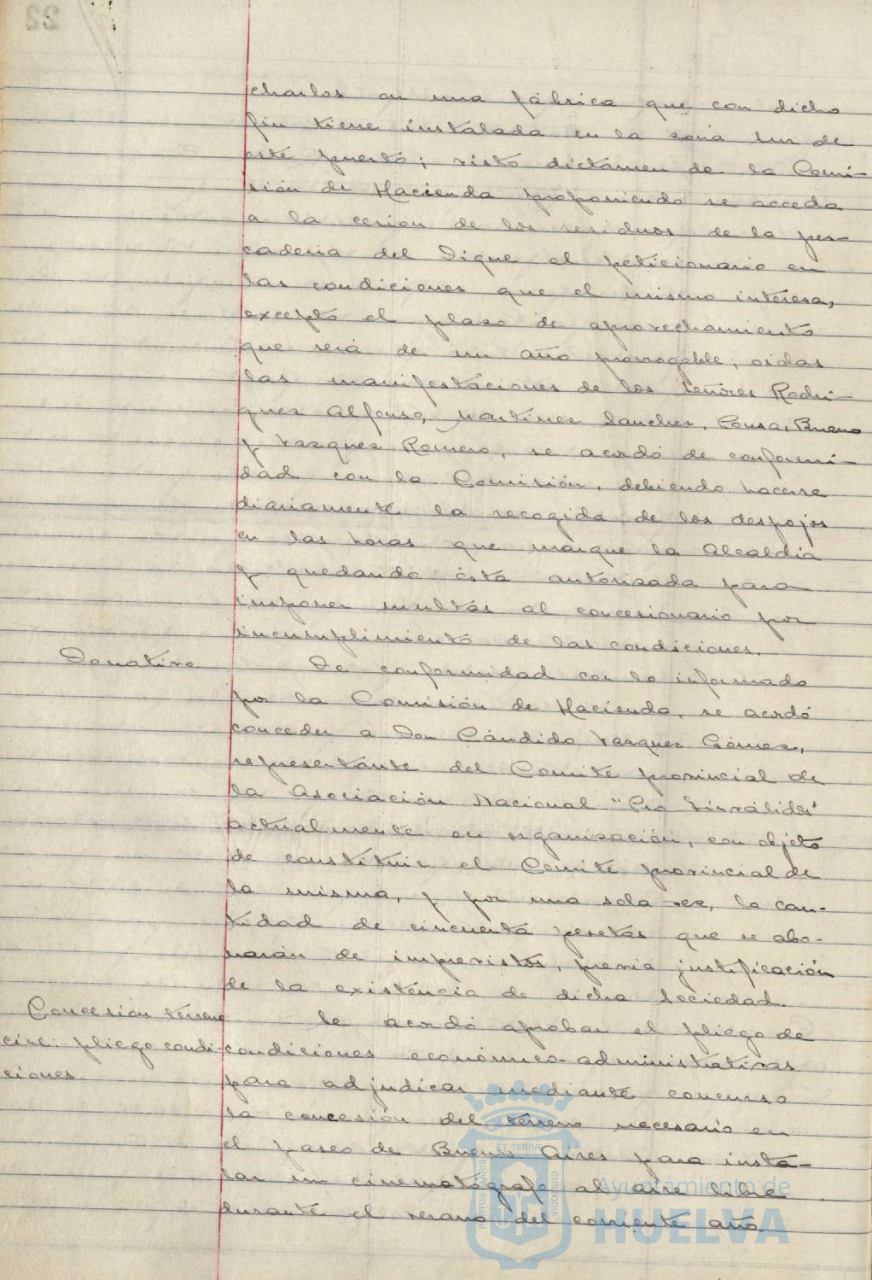 charlos en una fábrica que con dicho
fin tiene instalada en la zona sur de
este puerto; visto dictámen de la Comi-
sión de Hacienda proponiendo se acceda
a la cesión de los residuos de la pes-
cadería del Dique al peticionario en
las condiciones que el mismo interesa,
excepto el plazo de aprovechamiento
que será de un año prorrogable; oidas
las manifestaciones de los señores Rodri-
guez Alfonso, Martínez Sanchez, Bueno
y Vazquez Romero, se acordó de conformi-
dad con la Comisión, debiendo hacerse
diariamente la recogida de los despojos
en las horas que marque la Alcaldía
y quedando ésta autorizada para
imponer multas al concesionario por
incumplimiento de las condiciones.
Donativo
De conformidad con lo informado
por la Comisión de Hacienda, se acordó
conceder a Don Cándido Vazquez Gómez,
representante del Comité provincial de
la Asociación Nacional "Pro Inválidos"
actualmente en organización, con objeto
de constituir el Comité provincial de
la misma, y por una sola vez, la can-
tidad de cincuenta pesetas que se abo-
narán de imprevistos, previa justificación
de la existencia de dicha Sociedad.
Concesión terreno
cine: pliego condi-
ciones
Se acordó aprobar el pliego de
condiciones económico-administrativas
para adjudicar mediante concurso
la concesión del terreno necesario en
el paseo de Buenos Aires para insta-
lar un cinematógrafo al aire libre
durante el verano del corriente año
Ayuntamiento de
HUELVA